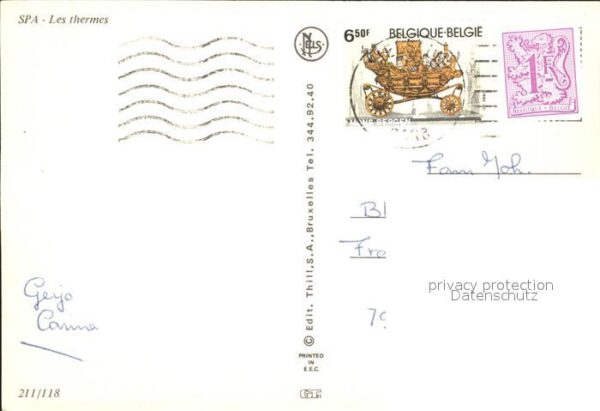 SPA - Les thermes
6 50F BELGIQUE-BELGIË
MONS-BERGEN
1F
BELGIQUE · BELGIË
NELS
© Edit. Thill,S.A.,Bruxelles Tel. 344.92.40
Fam Joh.
Bl
Fro
79
privacy protection
Datenschutz
Gerjo
Carina
PRINTED
IN
E.E.C.
211/118